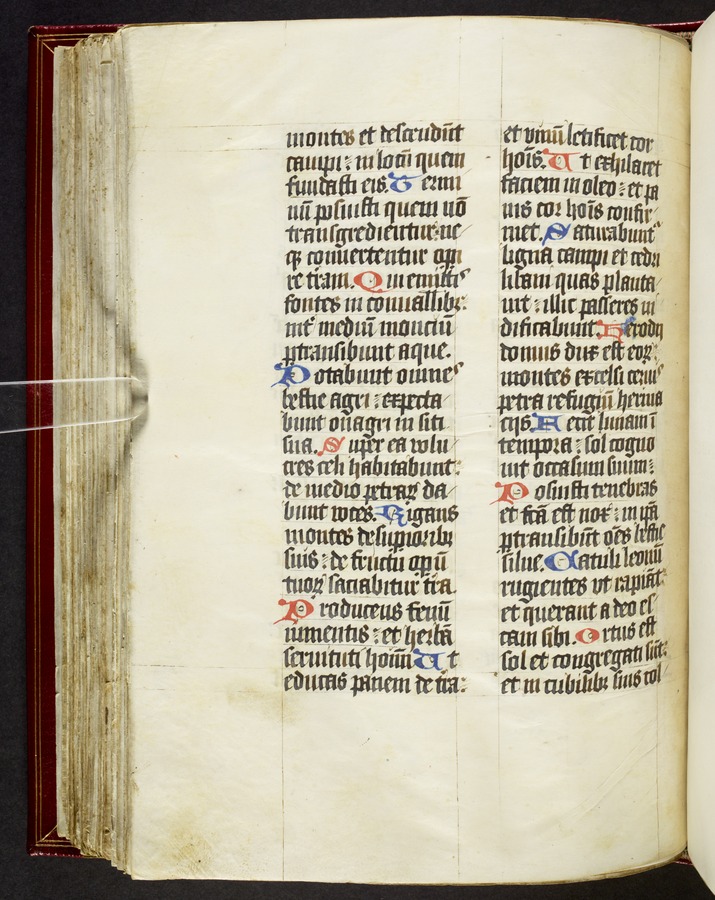 montes et descendūt
campi : in locū quem
fundasti eis. Termi
nū posuisti quem nō
transgredientur : ne
qꝫ conuertentur opi
re terram. Qui emittis
fontes in conuallibꝫ :
int̄ mediū monciū
ꝑtransibunt aque.
Potabunt omnes
bestie agri : expecta
bunt onagri in siti
sua. Super ea volu
cres celi habitabunt :
de medio petraꝝ da
bunt voces. Rigans
montes de superioribꝫ
suis : de fructu opū
tuoꝝ saciabitur tr̄a.
Producens fenū
iumentis : et herbā
seruituti hoīm Ut
educas panem de tr̄a :
et vinū letificet cor
hoīs. Ut exhilaret
faciem in oleo : et pa
nis cor hoīs confir
met. Saturabunt᷑
ligna campi et cedri
libani quas planta
uit : illic passeres ni
dificabunt. Herodij
domus dux est eoꝝ :
montes excelsi ceruis
petra refugiū herina
cijs. Fecit lunam ī
tempora : sol cogno
uit occasum suum :
Posuisti tenebras
et fc̄a est nox : in ip̄a
ꝑtransibūt oēs bestie
silue. Catuli leonū
rugientes vt rapiāt :
et querant a deo es
cam sibi. Ortus est
sol et congregati sūt :
et in cubilibꝫ suis col